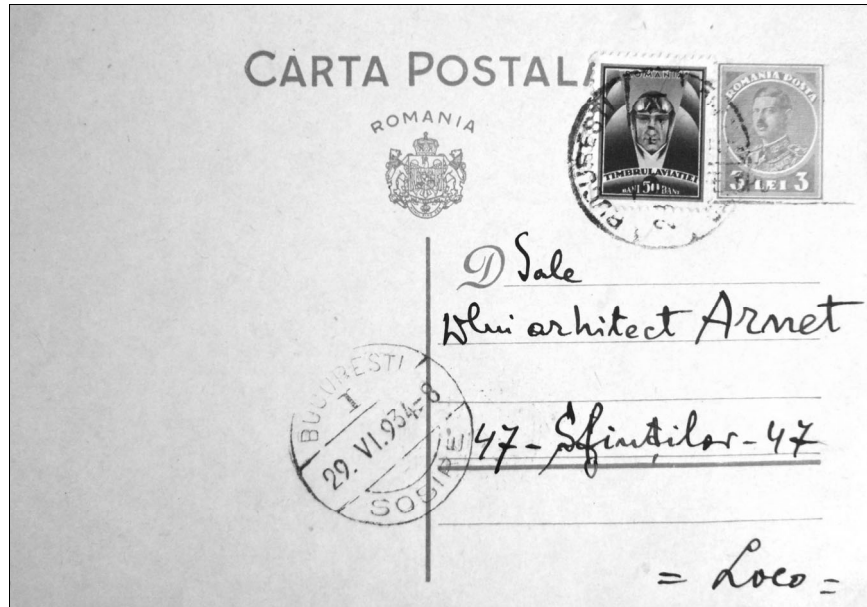 CARTA POSTALA
ROMANIA
ROMANIA
TIMBRUL AVIATIEI
BANI 50 BANI
ROMANIA POSTA
3 LEI 3
BUCURESTI
D Sale
Dlui arhitect Arnet
47 - Sfinților - 47
= Loco =
BUCURESTI
I
29. VI. 934-8
SOSIRE